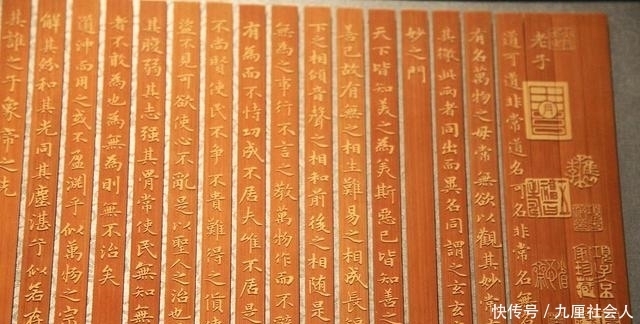 老子
道可道非常道名可名非常名無
有名萬物之母常無欲以觀其妙常
其徼此兩者同出而異名同謂之玄玄
妙之門
天下皆知美之為美斯惡已皆知善之
善已故有無之相生難易之相成長
下之相傾音聲之相和前後之相隨是
無為之事行不言之教萬物作而不
有為而不恃功成不居夫唯不居是
不尚賢使民不爭不貴難得之貨使
盜不見可欲使心不亂是以聖人之治也
其腹弱其志强其骨常使民無知無
者不敢為也為無為則無不治矣
道沖而用之或不盈淵乎似萬物之宗
解其紛和其光同其塵湛乎似若存
其誰之子象帝之先
快传号／九厘社会人